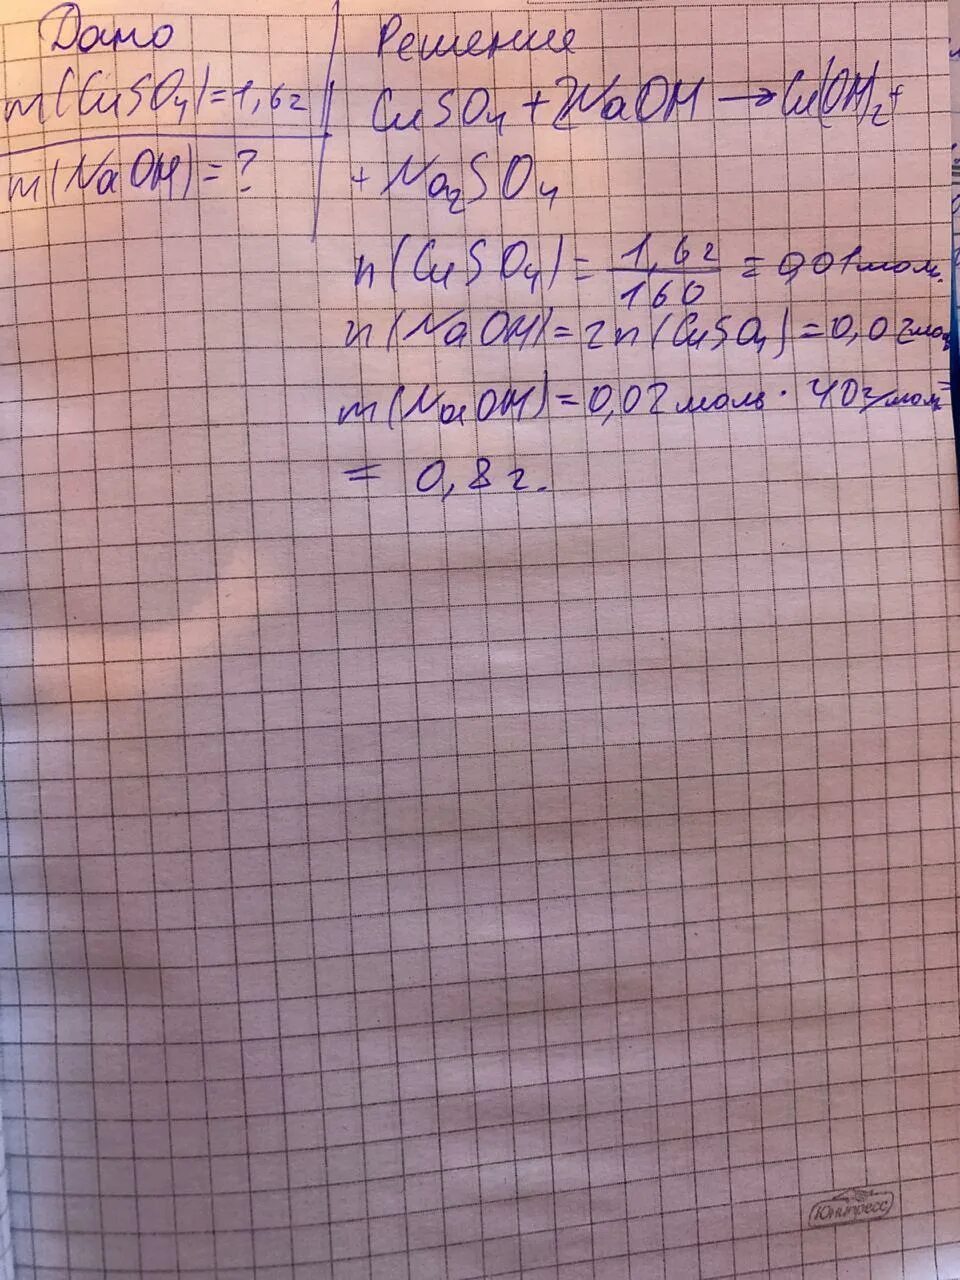 Дано
m(CuSO4)=1,6г
m(NaOH)=?
Решение
CuSO4+2NaOH→Cu(OH)2+
+Na2SO4
n(CuSO4)=1,6г/160=0,01мол.
n(NaOH)=2n(CuSO4)=0,02моль
m(NaOH)=0,02моль·40г/моль=
=0,8г.
Юнипресс